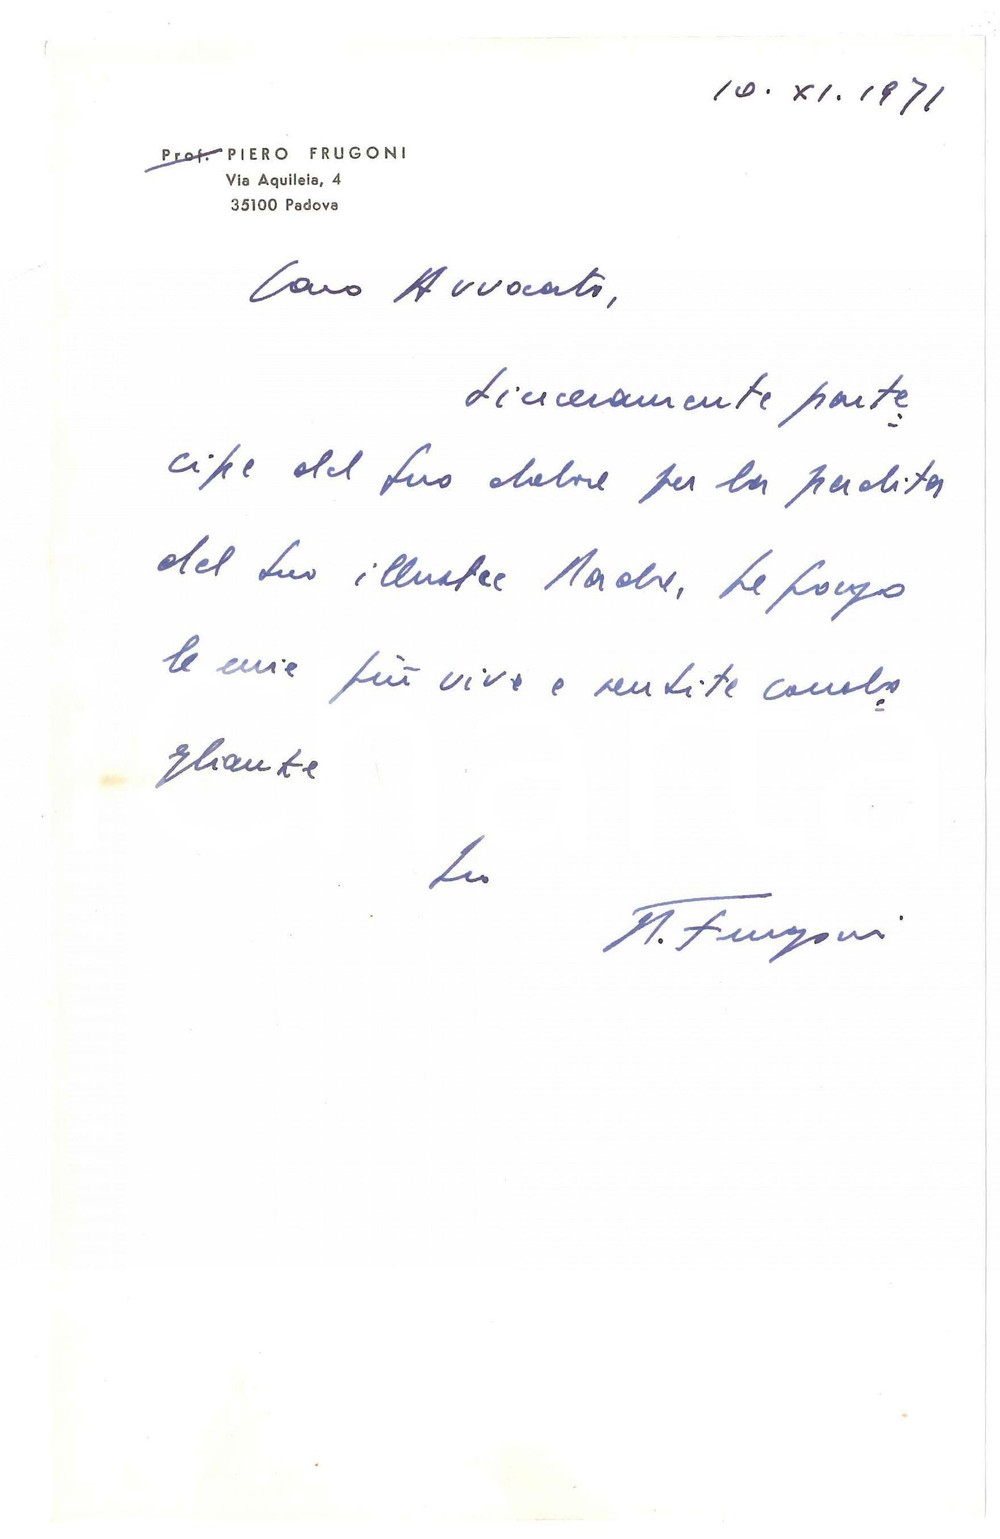 10. XI. 1971
Prof. PIERO FRUGONI
Via Aquileia, 4
35100 Padova
Caro Avvocato,
sinceramente parte
cipe del Suo dolore per la perdita
del Suo illustre Padre, Le porgo
le mie più vive e sentite condo
glianze
Suo
P. Frugoni